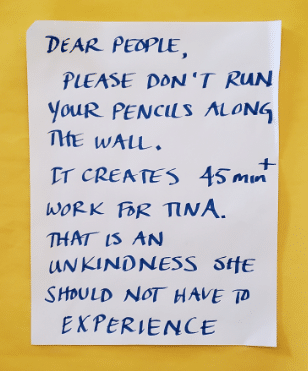 DEAR PEOPLE,
PLEASE DON'T RUN
YOUR PENCILS ALONG
THE WALL.
IT CREATES 45min+
WORK FOR TINA.
THAT IS AN
UNKINDNESS SHE
SHOULD NOT HAVE TO
EXPERIENCE